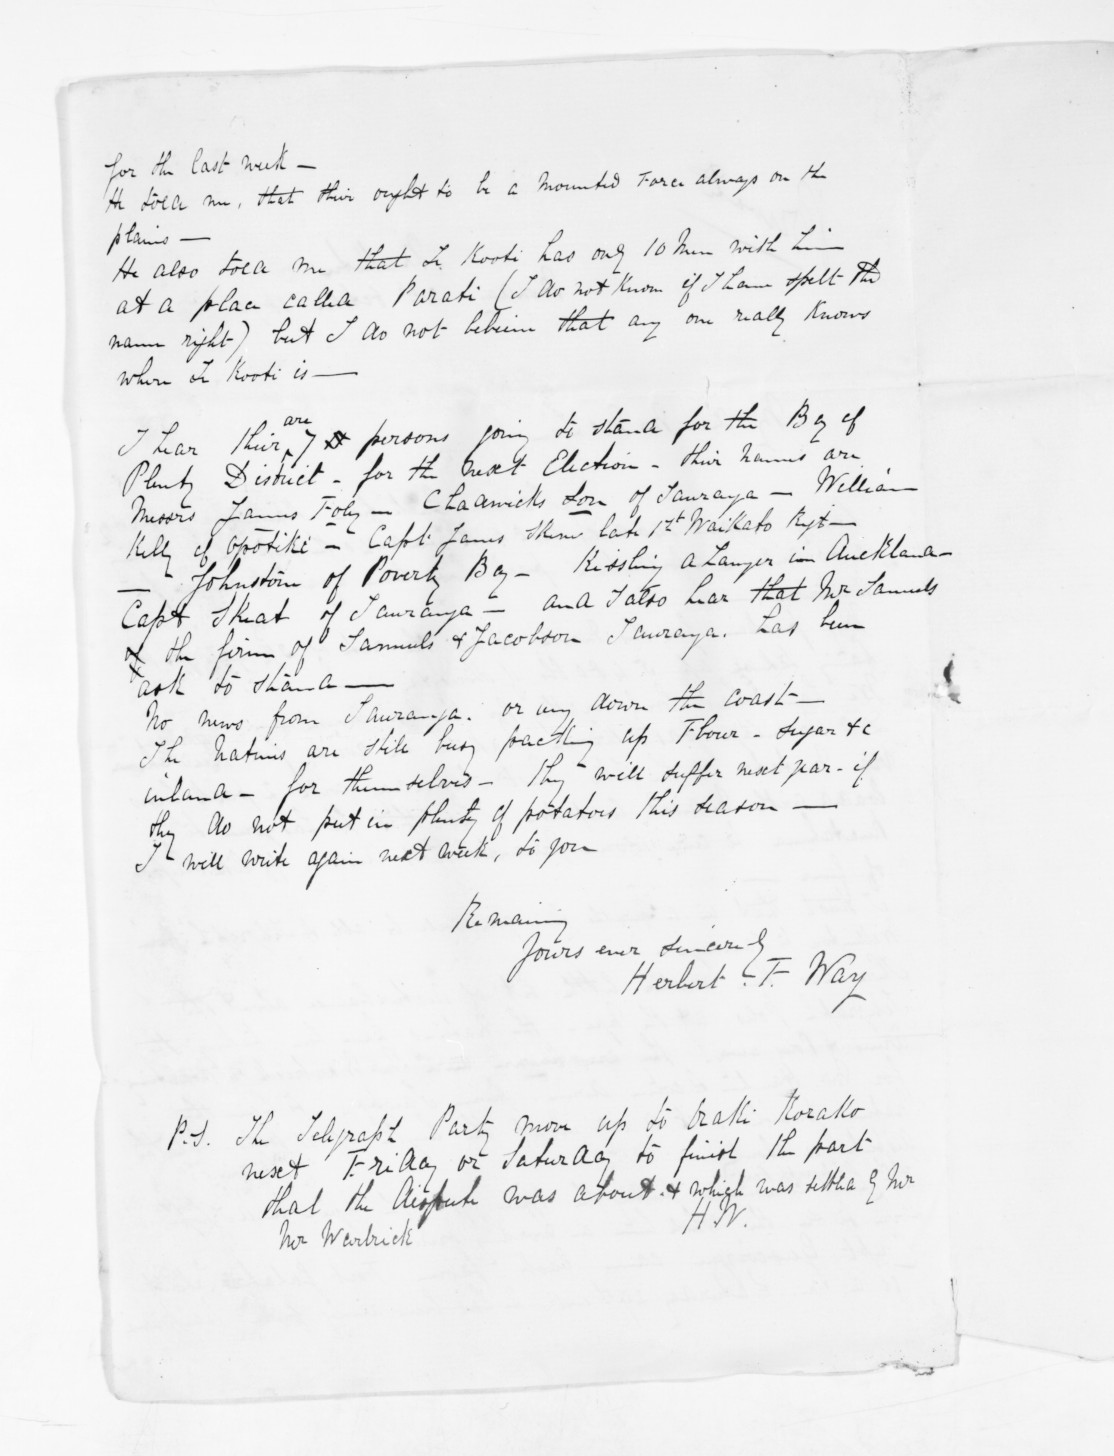 for the last week —
He told me, that thier ought to be a Mounted Force always on the
plains —
He also told me that Te Kooti has only 10 Men with him
at a place called Parati (I do not know if I have spelt the
name right) but I do not believe that any one really knows
where Te Kooti is —
I hear thier are 7 persons going to stand for the Bay of
Plenty District - for the next Election - thier names are
Messrs James Foley — Chadwicks Son of Tauranga — William
Kelly of Opotiki — Capt James Skene late 1st Waikato Regt —
— Johnstone of Poverty Bay — Kissling a Lawyer in Auckland —
Capt Skeat of Tauranga — and I also hear that Mr Samuels
of the firm of Samuels & Jacobson Tauranga. has been
ask to stand —
No news from Tauranga. or any down the coast —
The Natives are still busy packing up Flour - sugar &c
inland — for themselves — they will suffer next year - if
they do not put in plenty of potatoes this season —
I will write again next week, to you
Remaining
Yours ever sincerely
Herbert . F. Way
P.S. The Telegraph Party move up to Oraki Korako
next Friday or Saturday to finish the part
that the dispute was about. & which was settled by Mr
Mr Warbrick
H W.